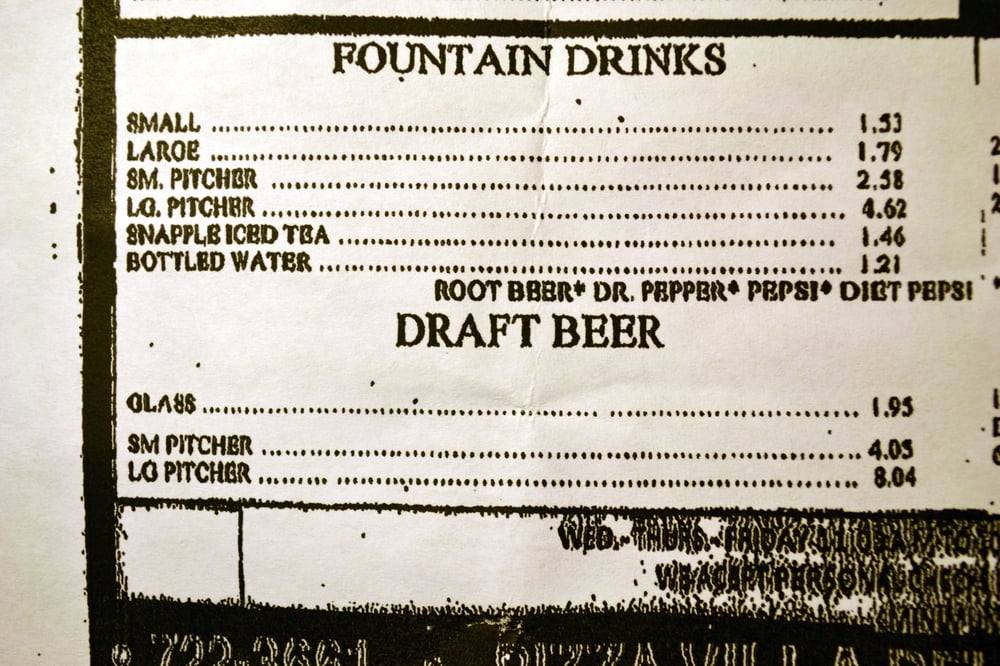 FOUNTAIN DRINKS
SMALL ........ 1.53
LARGE ........ 1.79
SM. PITCHER ........ 2.58
LG. PITCHER ........ 4.62
SNAPPLE ICED TEA ........ 1.46
BOTTLED WATER ........ 1.21
ROOT BEER* DR. PEPPER* PEPSI* DIET PEPSI
DRAFT BEER
GLASS ........ 1.95
SM PITCHER ........ 4.05
LG PITCHER ........ 8.04
WED.-THURS.-FRIDAY 11:
WE ACEPT PERSONAL
722-3661 PIZZA VILLA